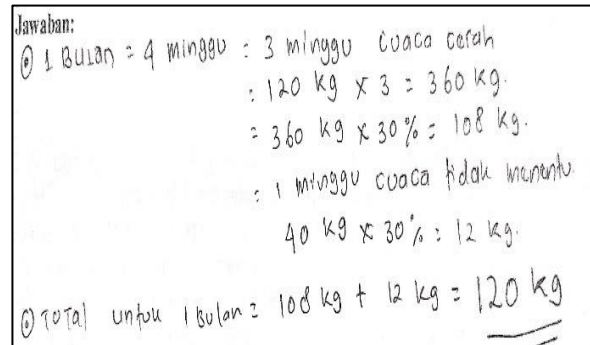 Jawaban:
⊙ 1 Bulan = 4 minggu = 3 minggu cuaca cerah
= 120 kg x 3 = 360 kg.
= 360 kg x 30% = 108 kg.
= 1 minggu cuaca tidak menentu.
40 kg x 30% = 12 kg.
⊙ TOTal untuk 1 Bulan = 108 kg + 12 kg = 120 kg